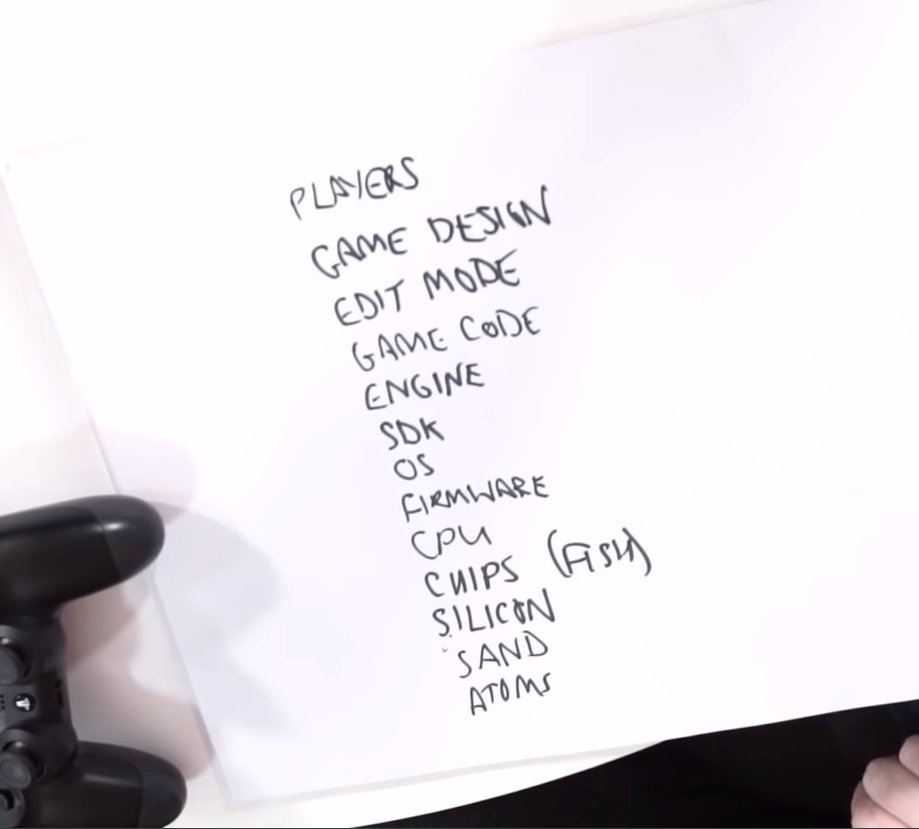 PLAYERS
GAME DESIGN
EDIT MODE
GAME CODE
ENGINE
SDK
OS
FIRMWARE
CPU
CHIPS (FISH)
SILICON
SAND
ATOMS